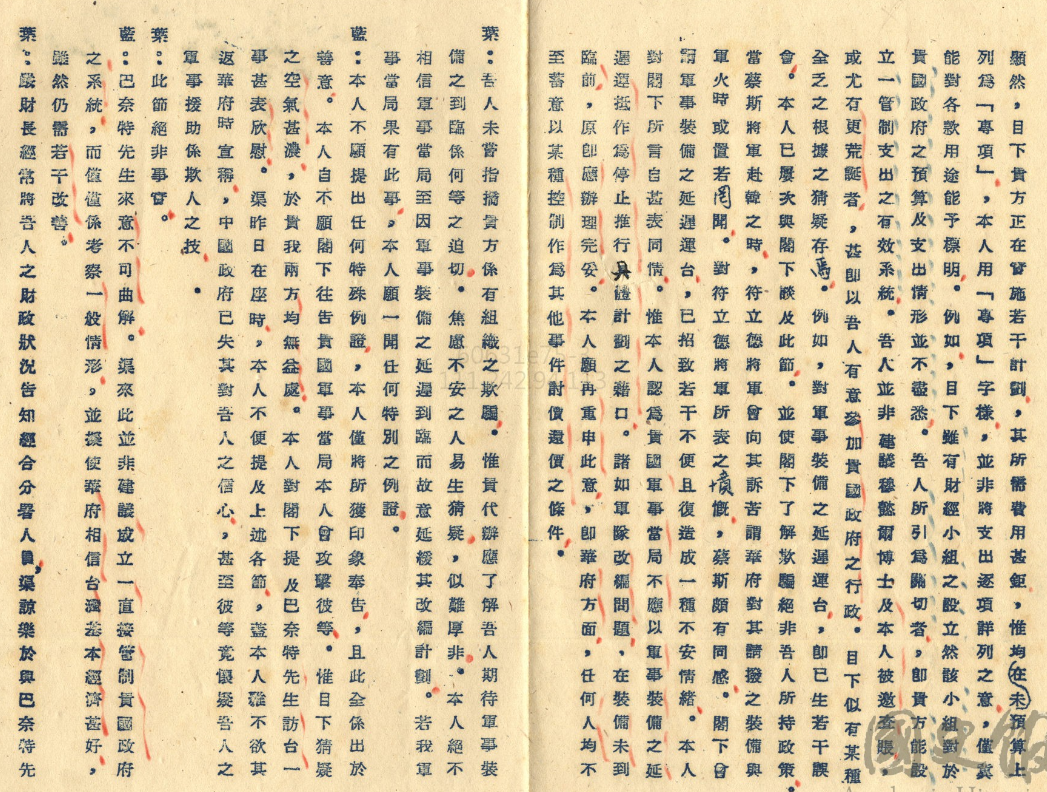 顯然，目下貴方正在實施若干計劃，其所需費用甚鉅，惟均在未預算上
列爲「專項」，本人用「專項」字樣，並非將支出逐項詳列之意，僅冀
能對各款用途能予標明。例如，目下雖有財經小組之設立然該小組對於
貴國政府之預算及支出情形並不盡悉。吾人所引爲關切者，卽貴方能設
立一管制支出之有效系統。吾人並非建議穆懿爾博士及本人被邀查賬，
或尤有更荒誕者，甚卽以吾人有意參加貴國政府之行政。目下似有某種
全乏之根據之猜疑存焉。例如，對軍事裝備之延遲運台，卽已生若干誤
會。本人已屢次與閣下談及此節。並使閣下了解欺騙絕非吾人所持政策。
當蔡斯將軍赴韓之時，符立德將軍會向其訴苦謂華府對其請撥之裝備與
軍火時或置若罔聞。對符立德將軍所表之憤慨，蔡斯頗有同感。閣下會
謂軍事裝備之延遲運台，已招致若干不便且復造成一種不安情緒。本人
對閣下所言自甚表同情。惟本人認爲貴國軍事當局不應以軍事裝備之延
遲運抵作爲停止推行具體計劃之藉口。諸如軍隊改編問題，在裝備未到
臨前，原卽應辦理完妥。本人願再重申此意，卽華府方面，任何人均不
至蓄意以某種控制作爲其他事件討價還價之條件。
葉：吾人未嘗指摘貴方係有組織之欺騙。惟貴代辦應了解吾人期待軍事裝
備之到臨係何等之迫切。焦慮不安之人易生猜疑，似難厚非。本人絕不
相信軍事當局至因軍事裝備之延遲到臨而故意延緩其改編計劃。若我軍
事當局果有此事，本人願一聞任何特別之例證。
藍：本人不願提出任何特殊例證，本人僅將所獲印象奉告，且此全係出於
善意。本人自不願閣下往告貴國軍事當局本人會攻擊彼等。惟目下猜疑
之空氣甚濃，於貴我兩方均無益處。本人對閣下提及巴奈特先生訪台一
事甚表欣慰。渠昨日在座時，本人不便提及上述各節，蓋本人雖不欲其
返華府時宣稱，中國政府已失其對吾人之信心，甚至彼等竟懷疑吾人之
軍事援助係欺人之技。
葉：此節絕非事實。
藍：巴奈特先生來意不可曲解。渠來此並非建議成立一直接管制貴國政府
之系統，而僅僅係考察一般情形，並擬使華府相信台灣基本經濟甚好，
雖然仍需若干改善。
葉：嚴財長經常將吾人之財政狀況告知經合分署人員，渠諒樂於與巴奈特先
國史館